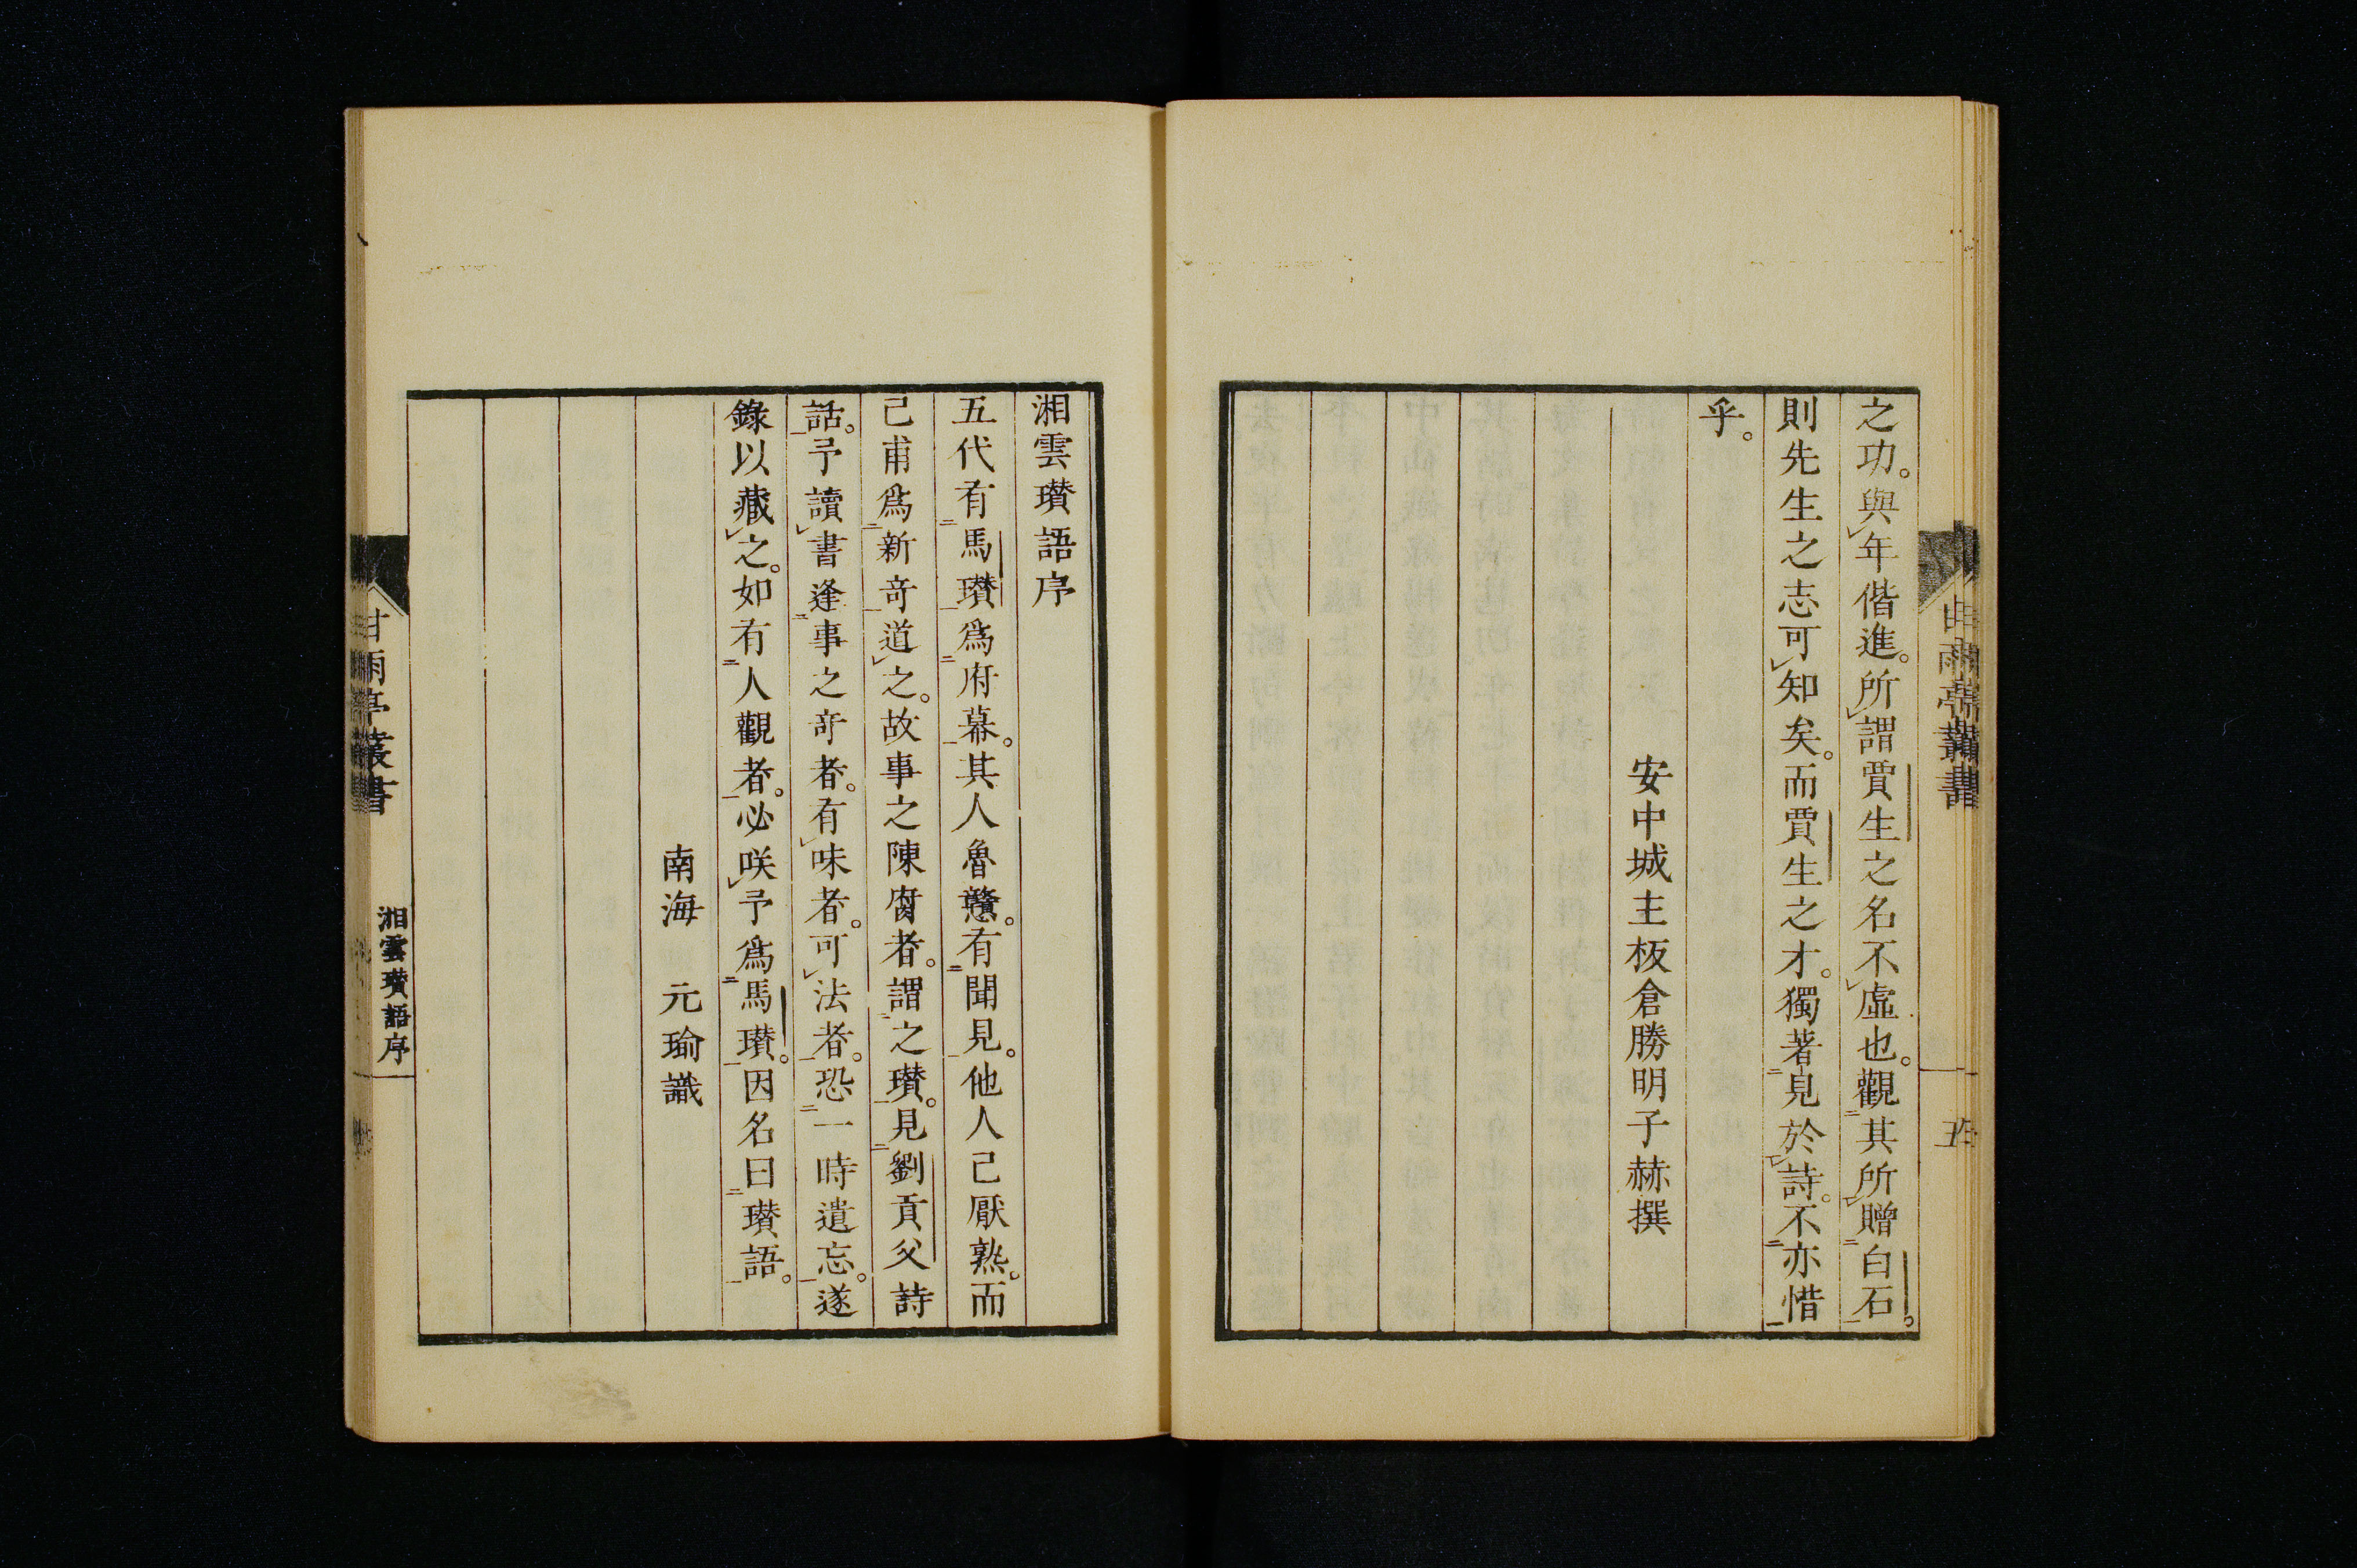 之功。與年偕進。所謂賈生之名不虛也。觀其所贈白石。
則先生之志可知矣。而賈生之才。獨著見於詩。不亦惜
乎。
安中城主板倉勝明子赫撰
甘雨亭叢書
五
湘雲瓚語序
五代有馬瓚爲府幕。其人魯戇。有聞見。他人已厭熟。而
己甫爲新奇道之。故事之陳腐者。謂之瓚。見劉貢父詩
話。予讀書逢事之奇者。有味者。可法者。恐一時遺忘。遂
錄以藏之。如有人觀者。必咲予爲馬瓚。因名曰瓚語。
南海 元瑜識
甘雨亭叢書
湘雲瓚語序